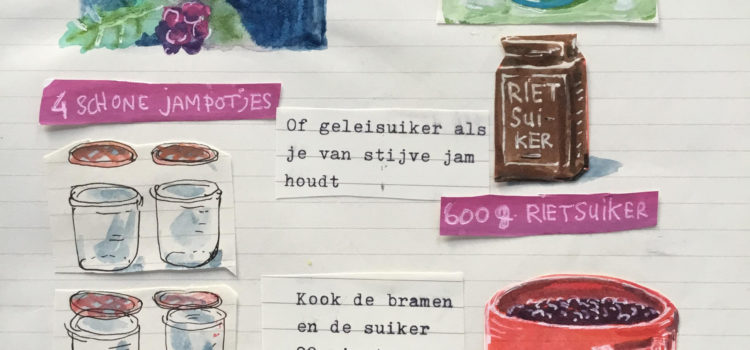 4 SCHONE JAMPOTJES
Of geleisuiker als
je van stijve jam
houdt
RIET
SUI-
KER
600g RIETSUIKER
Kook de bramen
en de suiker